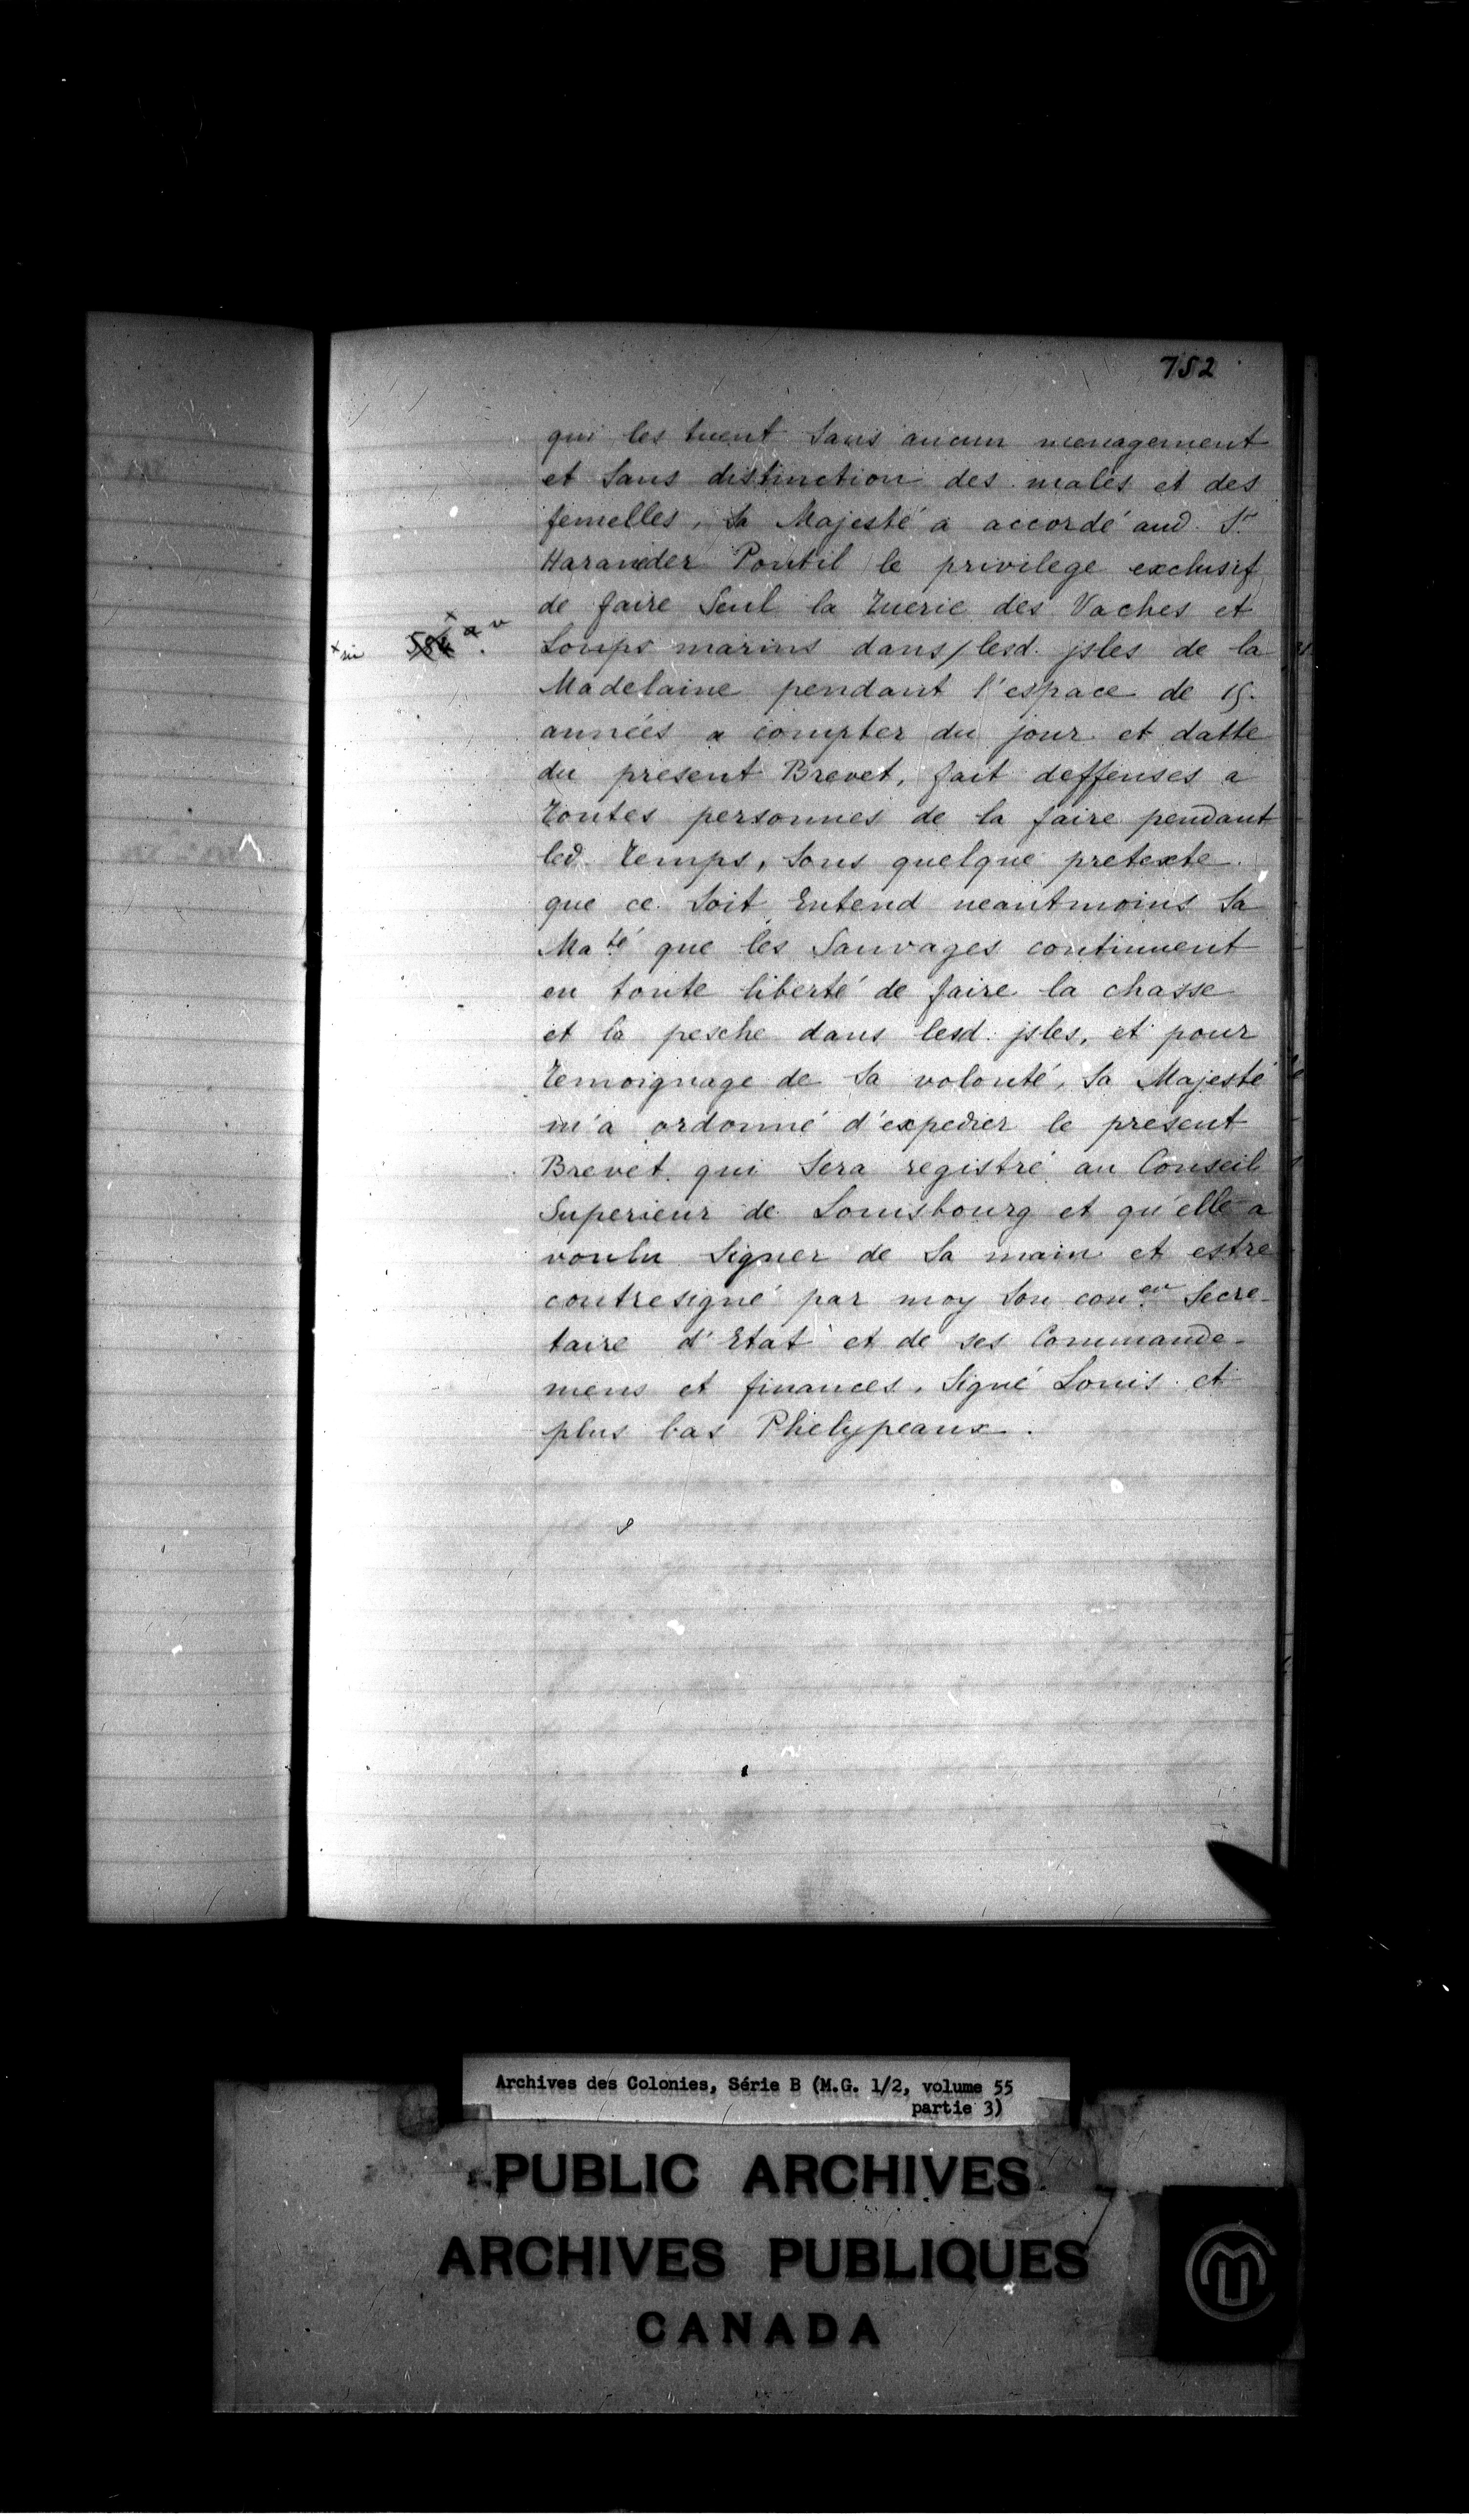 752
qui les tuent sans aucun menagement
et sans distinction des males et des
femelles, sa Majesté a accordé aud. Sr
Haraneder Pontil le privilege exclusif
de faire seul la tuerie des Vaches et
Loups marins dans / lesd. jsles de la
Madelaine pendant l'espace de 15.
années a compter du jour et datte
du present Brevet, fait deffenses a
toutes personnes de la faire pendant
led. temps, sous quelque pretexte
que ce soit Entend neantmoins sa
Maté que les Sauvages continuent
en toute liberté de faire la chasse
et la pesche dans lesd. jsles, et pour
temoignage de sa volonté, sa Majesté
m'a ordonné d'expedier le present
Brevet qui sera registré au Conseil
Superieur de Louisbourg et qu'elle a
voulu signer de sa main et estre
contresigné par moy son coner Secre-
taire d'Etat et de ses Commande-
mens et finances. Signé Louis et
plus bas Phelypeaux.
Archives des Colonies, Série B (M.G. 1/2, volume 55
partie 3)
PUBLIC ARCHIVES
ARCHIVES PUBLIQUES
CANADA